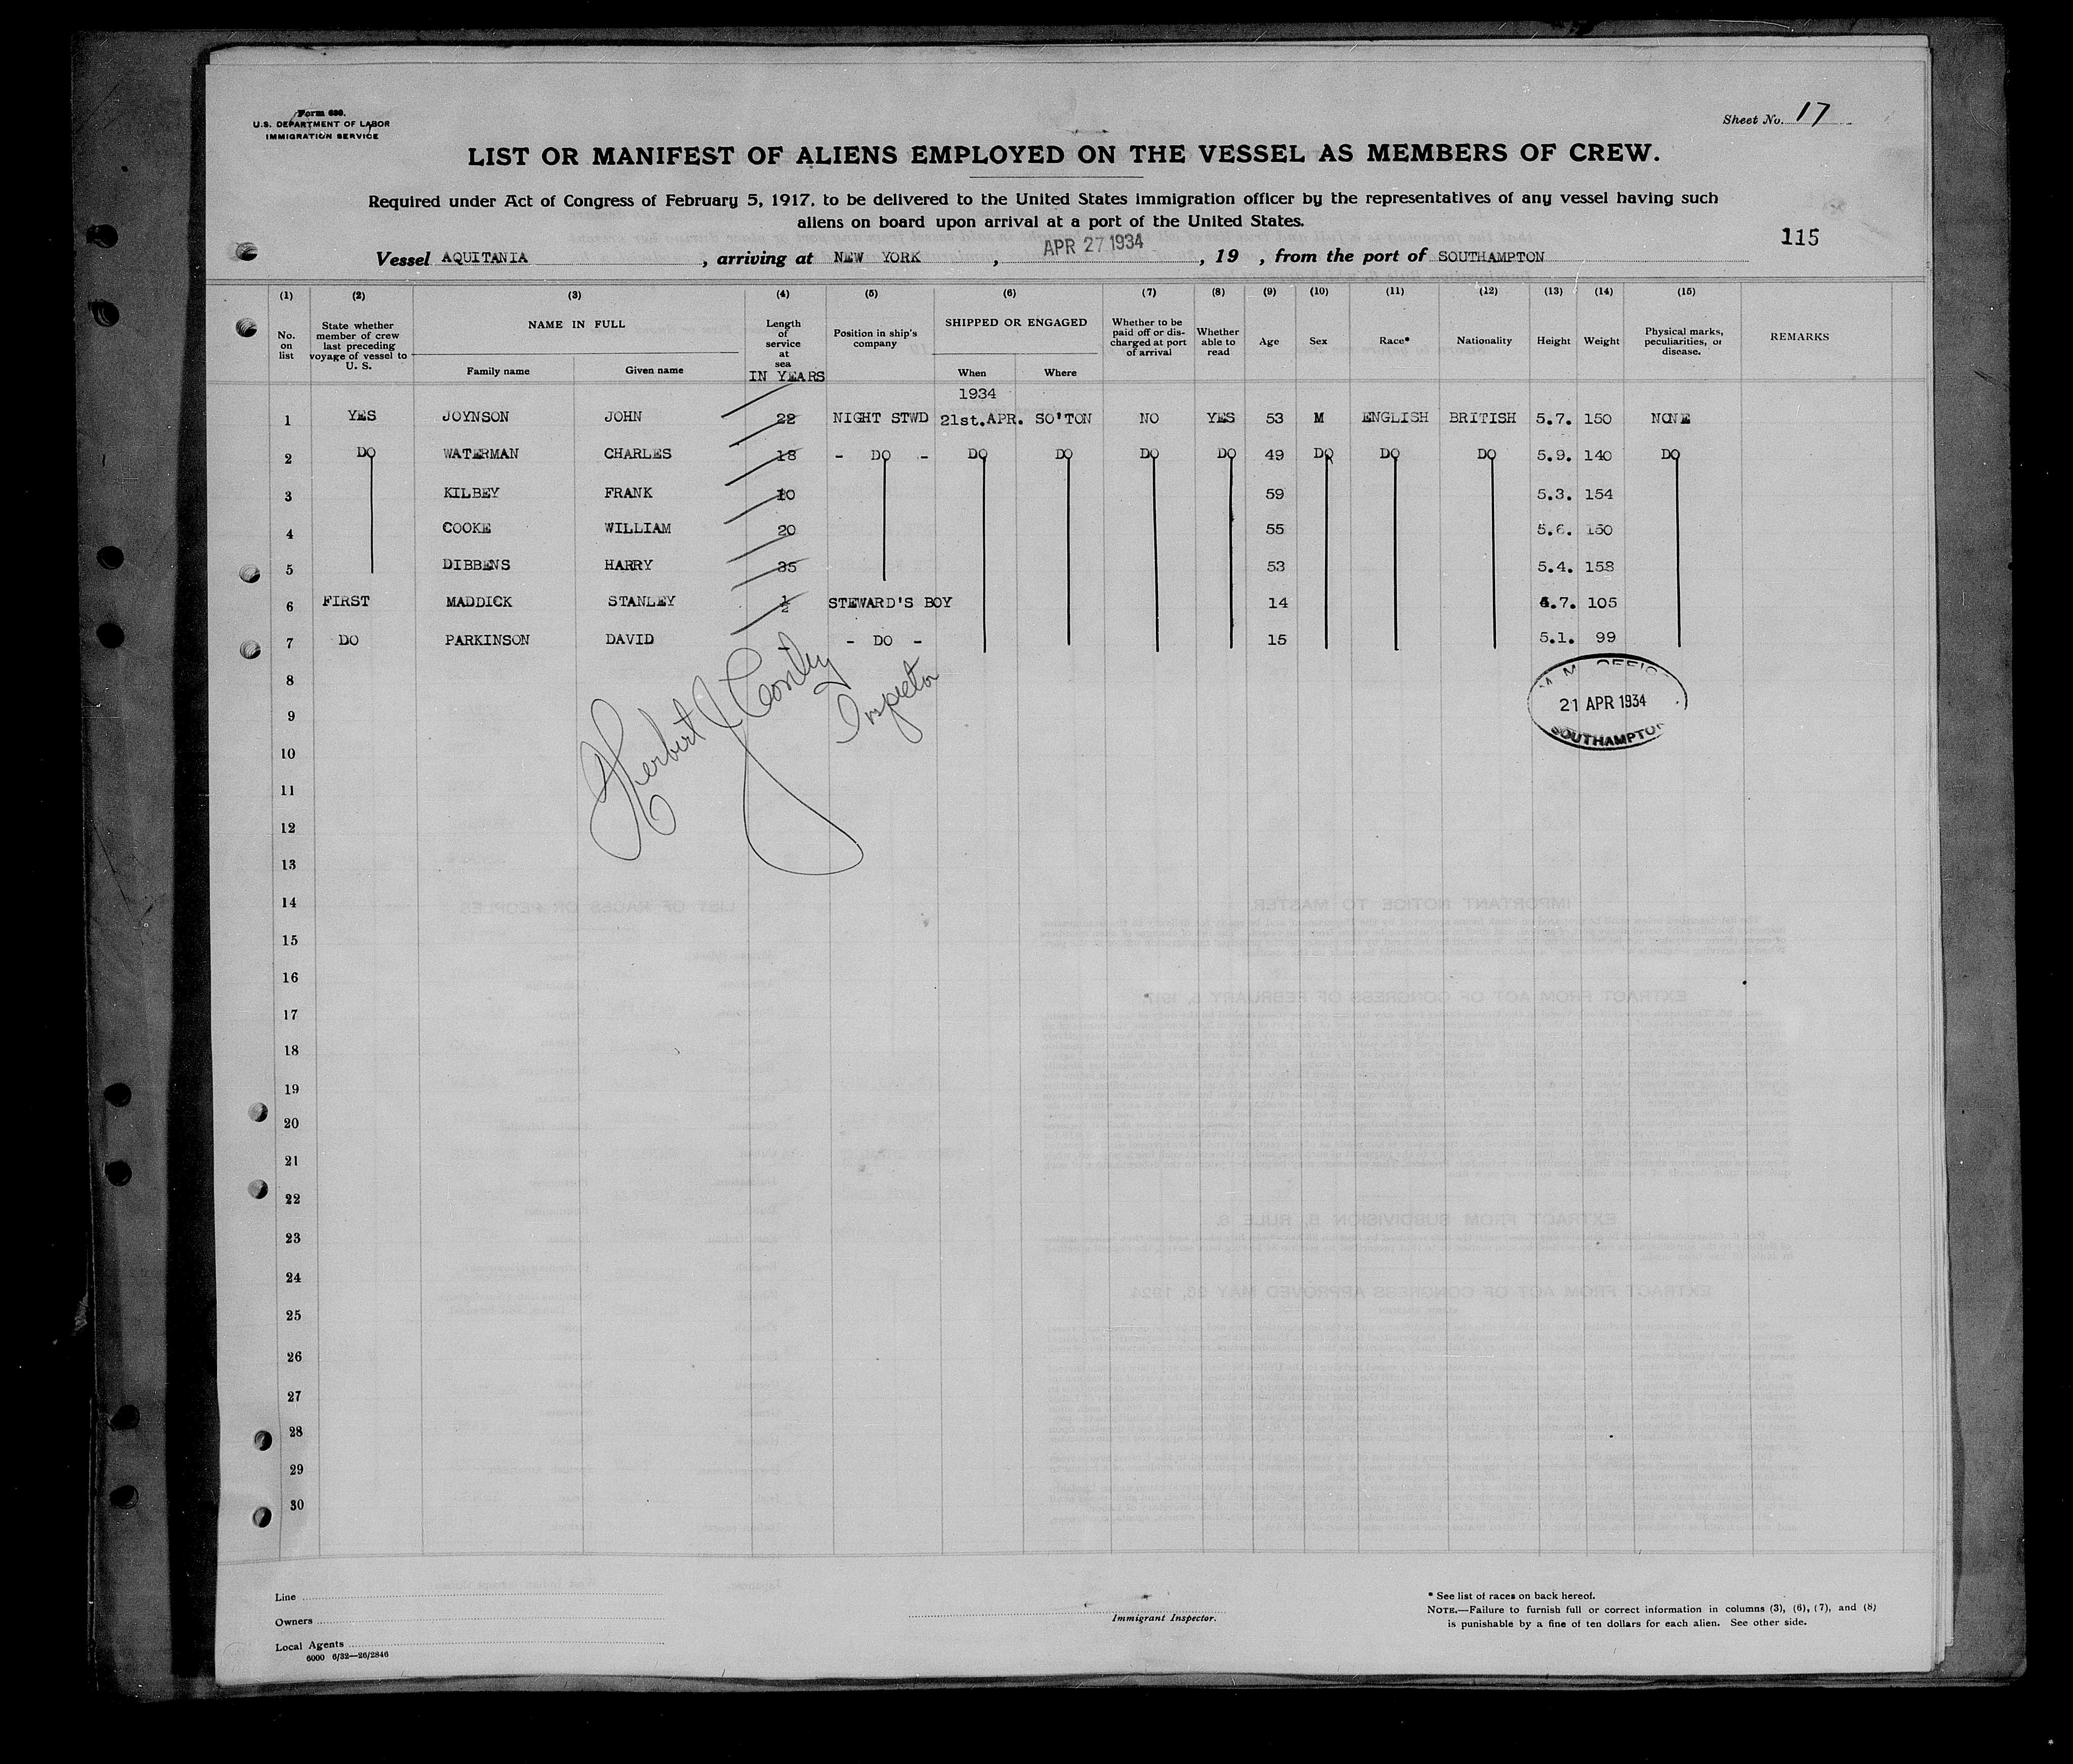 Form 680.
U.S. DEPARTMENT OF LABOR
IMMIGRATION SERVICE
Sheet No. 17
LIST OR MANIFEST OF ALIENS EMPLOYED ON THE VESSEL AS MEMBERS OF CREW.
Required under Act of Congress of February 5, 1917, to be delivered to the United States immigration officer by the representatives of any vessel having such
aliens on board upon arrival at a port of the United States.
115
Vessel AQUITANIA, arriving at NEW YORK, APR 27 1934, 19 , from the port of SOUTHAMPTON
(1) (2) (3) (4) (5) (6) (7) (8) (9) (10) (11) (12) (13) (14) (15)
No. on list
State whether member of crew last preceding voyage of vessel to U. S.
NAME IN FULL
Family name
Given name
Length of service at sea
IN YEARS
Position in ship's company
SHIPPED OR ENGAGED
When
Where
Whether to be paid off or discharged at port of arrival
Whether able to read
Age
Sex
Race*
Nationality
Height
Weight
Physical marks, peculiarities, or disease.
REMARKS
1934
1 YES JOYNSON JOHN 22 NIGHT STWD 21st.APR. SO'TON NO YES 53 M ENGLISH BRITISH 5.7. 150 NONE
2 DO WATERMAN CHARLES 18 - DO - DO DO DO DO 49 DO DO DO 5.9. 140 DO
3 KILBEY FRANK 10 59 5.3. 154
4 COOKE WILLIAM 20 55 5.6. 150
5 DIBBENS HARRY 35 53 5.4. 158
6 FIRST MADDICK STANLEY 1/2 STEWARD'S BOY 14 4.7. 105
7 DO PARKINSON DAVID - DO - 15 5.1. 99
8
9
10
11
12
13
14
15
16
17
18
19
20
21
22
23
24
25
26
27
28
29
30
Herbert J
Inspector
M. M. OFFICE
21 APR 1934
SOUTHAMPTON
Line
Owners
Local Agents
6000 6/32—26/2846
Immigrant Inspector.
* See list of races on back hereof.
NOTE.—Failure to furnish full or correct information in columns (3), (6), (7), and (8)
is punishable by a fine of ten dollars for each alien. See other side.